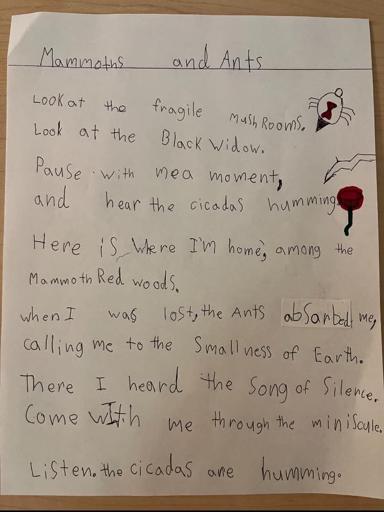 Mammoths and Ants
Look at the fragile MushRooms.
Look at the Black Widow.
Pause with me a moment,
and hear the cicadas humming.
Here is where I'm home, among the
Mammoth Red woods.
when I was lost, the Ants absorbed me,
calling me to the Smallness of Earth.
There I heard the Song of Silence.
Come with me through the miniscule.
Listen. the cicadas are humming.